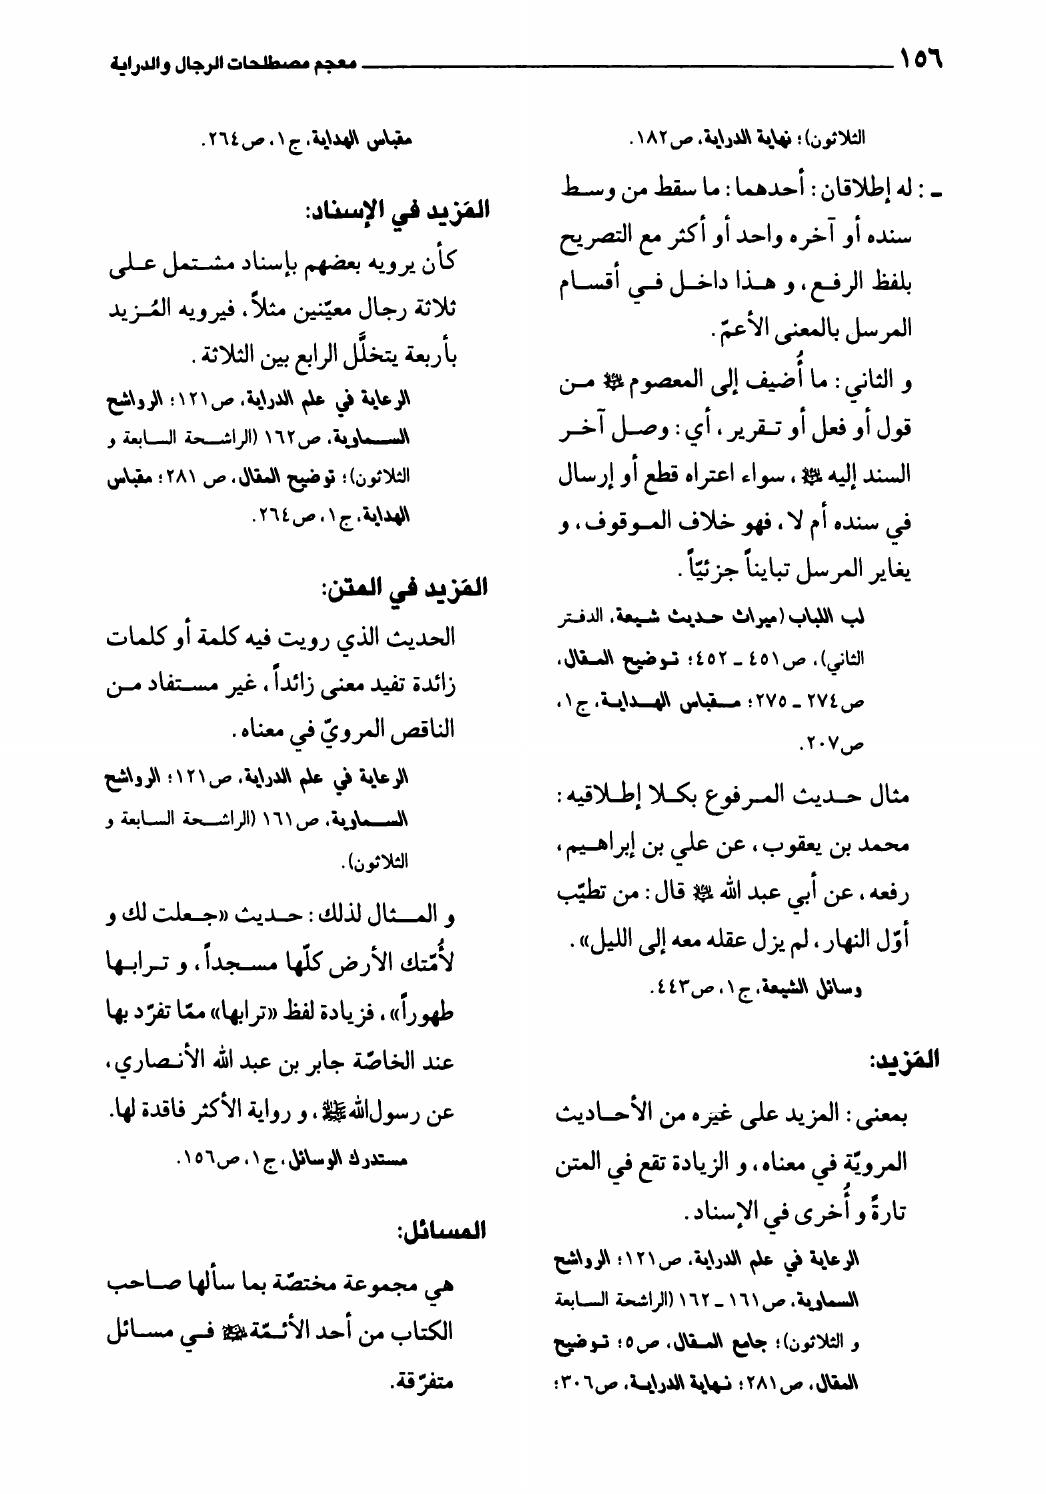 ١٥٦ معجم مصطلحات الرجال والدراية
الثلاثون)؛ نهاية الدراية، ص١٨٢.
ـ : له إطلاقان: أحدهما: ما سقط من وسط
سنده أو آخره واحد أو أكثر مع التصريح
بلفظ الرفع، و هذا داخل في أقسام
المرسل بالمعنى الأعمّ.
و الثاني: ما أُضيف إلى المعصوم ﷷ من
قول أو فعل أو تقرير، أي: وصل آخر
السند إليه ﷷ، سواء اعتراه قطع أو إرسال
في سنده أم لا، فهو خلاف الموقوف، و
يغاير المرسل تبايناً جزئيّاً.
لب اللباب (ميراث حديث شيعة، الدفتر
الثاني)، ص٤٥١ ـ ٤٥٢؛ توضيح المقال،
ص٢٧٤ ـ ٢٧٥؛ مقباس الهداية، ج١،
ص٢٠٧.
مثال حديث المرفوع بكلا إطلاقيه:
محمد بن يعقوب، عن علي بن إبراهيم،
رفعه، عن أبي عبد الله ﷷ قال: من تطيّب
أوّل النهار، لم يزل عقله معه إلى الليل».
وسائل الشيعة، ج١، ص٤٤٣.
المَزيد:
بمعنى: المزيد على غيره من الأحاديث
المرويّة في معناه، و الزيادة تقع في المتن
تارةً و أُخرى في الإسناد.
الرعاية في علم الدراية، ص١٢١؛ الرواشح
السماوية، ص١٦١ ـ ١٦٢ (الراشحة السابعة
و الثلاثون)؛ جامع المقال، ص٥؛ توضيح
المقال، ص٢٨١؛ نهاية الدراية، ص٣٠٦؛
مقباس الهداية، ج١، ص٢٦٤.
المَزيد في الإسناد:
كأن يرويه بعضهم بإسناد مشتمل على
ثلاثة رجال معيّنين مثلاً، فيرويه المُزيد
بأربعة يتخلَّل الرابع بين الثلاثة.
الرعاية في علم الدراية، ص١٢١؛ الرواشح
السماوية، ص١٦٢ (الراشحة السابعة و
الثلاثون)؛ توضيح المقال، ص ٢٨١؛ مقباس
الهداية، ج١، ص٢٦٤.
المَزيد في المتن:
الحديث الذي رويت فيه كلمة أو كلمات
زائدة تفيد معنى زائداً، غير مستفاد من
الناقص المرويّ في معناه.
الرعاية في علم الدراية، ص١٢١؛ الرواشح
السماوية، ص١٦١ (الراشحة السابعة و
الثلاثون).
و المثال لذلك: حديث «جعلت لك و
لأُمّتك الأرض كلّها مسجداً، و ترابها
طهوراً»، فزيادة لفظ «ترابها» ممّا تفرّد بها
عند الخاصّة جابر بن عبد الله الأنصاري،
عن رسول الله ﷺ، و رواية الأكثر فاقدة لها.
مستدرك الوسائل، ج١، ص١٥٦.
المسائل:
هي مجموعة مختصّة بما سألها صاحب
الكتاب من أحد الأئمّة ﷷ في مسائل
متفرّقة.